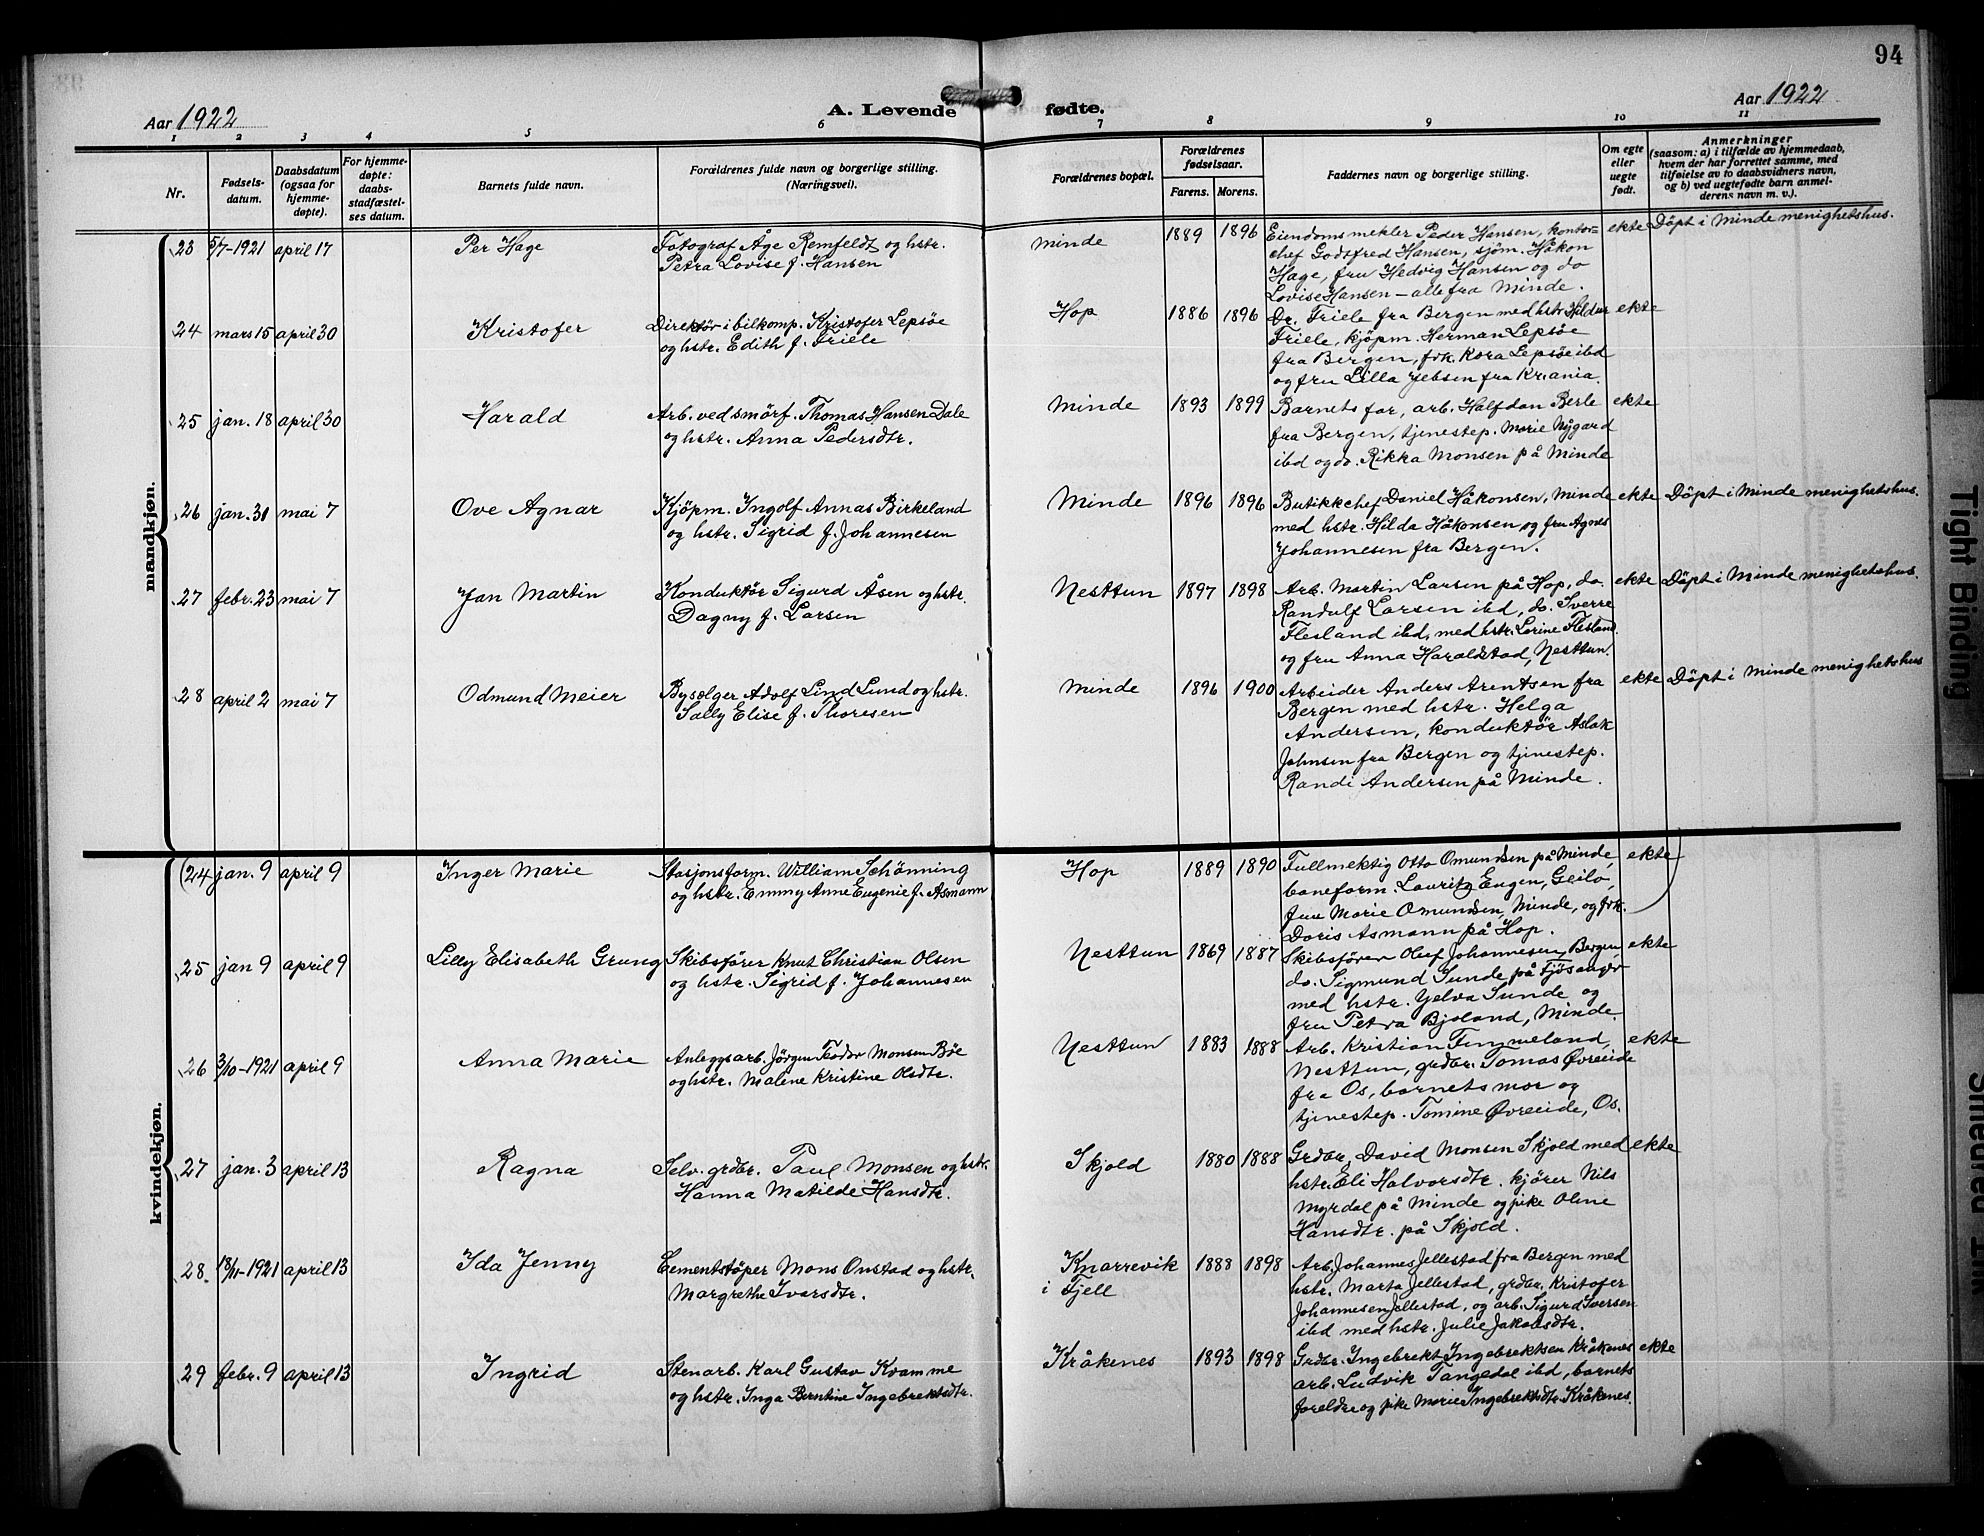 94
Aar 1922
A. Levende fødte.
Aar 1922
1 2 3 4 5 6 7 8 9 10 11
Nr.
Fødsels-
datum.
Daabsdatum
(ogsaa for
hjemme-
døpte).
For hjemme-
døpte:
daabs-
stadfæstel-
ses datum.
Barnets fulde navn.
Forældrenes fulde navn og borgerlige stilling.
(Næringsvei).
Forældrenes bopæl.
Forældrenes
fødselsaar.
Farens. Morens.
Faddernes navn og borgerlige stilling.
Om egte
eller
uegte
født.
Anmerkninger
(saasom: a) i tilfælde av hjemmedaab,
hvem der har forrettet samme, med
tilføielse av to daabsvidners navn,
og b) ved uegtefødte barn anmel-
derens navn m. v.).
mandkjøn.
23 5/7-1921 april 17 Per Hage
Fotograf Åge Remfeldt og hstr.
Petra Lovise f. Hansen
Minde 1889 1896
Eiendomsmekler Peder Hansen, kontor-
chef Godtfred Hansen, sjöm. Håkon
Hage, fru Hedvig Hansen og do
Lovise Hansen - alle fra Minde.
ekte Döpt i Minde menighetshus.
24 mars 15 april 30 Kristofer
Direktör i bilkomp. Kristofer Lepsöe
og hstr. Edith f. Friele
Hop 1886 1896
Dr. Friele fra Bergen med hstr. Hildur
Friele, kjöpm. Herman Lepsöe
fra Bergen, frk. Kora Lepsöe ibd
og fru Lilla Jebsen fra Kr.ania.
ekte
25 jan. 18 april 30 Harald
Arb. ved smörf. Thomas Hansen Dale
og hstr. Anna Pedersdtr.
Minde 1893 1899
Barnets far, arb. Halfdan Berle
fra Bergen, tjenestep. Marie Nygard
ibd og do. Rikka Monsen på Minde
ekte
26 jan. 31 mai 7 Ove Agnar
Kjöpm. Ingolf Annas Birkeland
og hstr. Sigrid f. Johannesen
Minde 1896 1896
Butikkchef Daniel Håkonsen, Minde
med hstr. Hilda Håkonsen og fru Agnes
Johannesen fra Bergen.
ekte Döpt i Minde menighetshus.
27 febr. 23 mai 7 Jan Martin
Konduktör Sigurd Åsen og hstr.
Dagny f. Larsen
Nesttun 1897 1898
Arb. Martin Larsen på Hop, do
Randulf Larsen ibd, do. Sverre
Flesland ibd, med hstr. Lorine Flesland
og fru Anna Haraldstad, Nesttun.
ekte Döpt i Minde menighetshus.
28 april 2 mai 7 Odmund Meier
Byselger Adolf Lind Lund og hstr.
Sally Elise f. Thoresen
Minde 1896 1900
Arbeider Anders Arentsen fra
Bergen med hstr. Helga
Andersen, konduktör Aslak
Johnsen fra Bergen og tjenestep.
Randi Andersen på Minde.
ekte Döpt i Minde menighetshus
kvindekjøn.
(24 jan. 9 april 9 Inger Marie
Stasjonsform. William Schönning
og hstr. Emmy Anne Eugenie f. Asmann
Hop 1889 1890
Fullmektig Otto Omundsen på Minde,
baneform. Lauritz Eugen, Geilo,
fru Marie Omundsen, Minde, og frk.
Doris Asmann på Hop.
ekte
25 jan 9 april 9 Lilly Elisabeth Grung
Skibsförer Knut Christian Olsen
og hstr. Sigrid f. Johannesen
Nesttun 1869 1887
Skibsförer Oluf Johannesen, Bergen,
do. Sigmund Sunde på Fjösanger
med hstr. Yelva Sunde og
fru Petra Bjoland, Minde.
ekte
26 3/10-1921 april 9 Anna Marie
Anleggsarb. Jörgen Teodor Monsen Böe
og hstr. Malene Kristine Olsdtr.
Nesttun 1883 1888
Arb. Kristian Timmeland,
Nesttun, grdbr. Tomas Øvreeide
fra Os, barnets mor og
tjenestep. Tomine Øvreeide, Os.
ekte
27 jan. 3 april 13 Ragna
Selv. grdbr. Paul Monsen og hstr.
Hanna Matilde Hansdtr.
Skjold 1880 1888
Grdbr. David Monsen Skjold med
hstr. Eli Halvorsdtr. kjörer Nils
Myrdal på Minde og pike Oline
Hansdtr. på Skjold.
ekte
28. 18/11-1921 april 13 Ida Jenny
Cementstöper Mons Onstad og hstr.
Margrethe Ivarsdtr.
Knarrevik
i Fjell
1888 1898
Arb. Johannes Jellestad fra Bergen med
hstr. Marta Jellestad, grdbr. Kristofer
Johannesen Jellestad, og arb. Sigurd Iversen
ibd med hstr. Julie Jakobsdtr.
29 febr. 9 april 13 Ingrid
Stenarb. Karl Gustav Kvamme
og hstr. Inga Berntine Ingebrektsdtr.
Kråkenes 1893 1898
Grdbr. Ingebrekt Ingebrektsen Kråkenes
arb. Ludvik Tangedal ibd, barnets
foreldre og pike Marie Ingebrektsdtr. Kråkenes.
ekte
Tight Binding
Smeared Ink